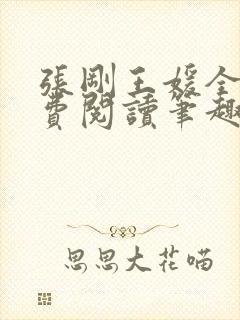 張剛王媛全
費閱讀筆趣
思思大花喵